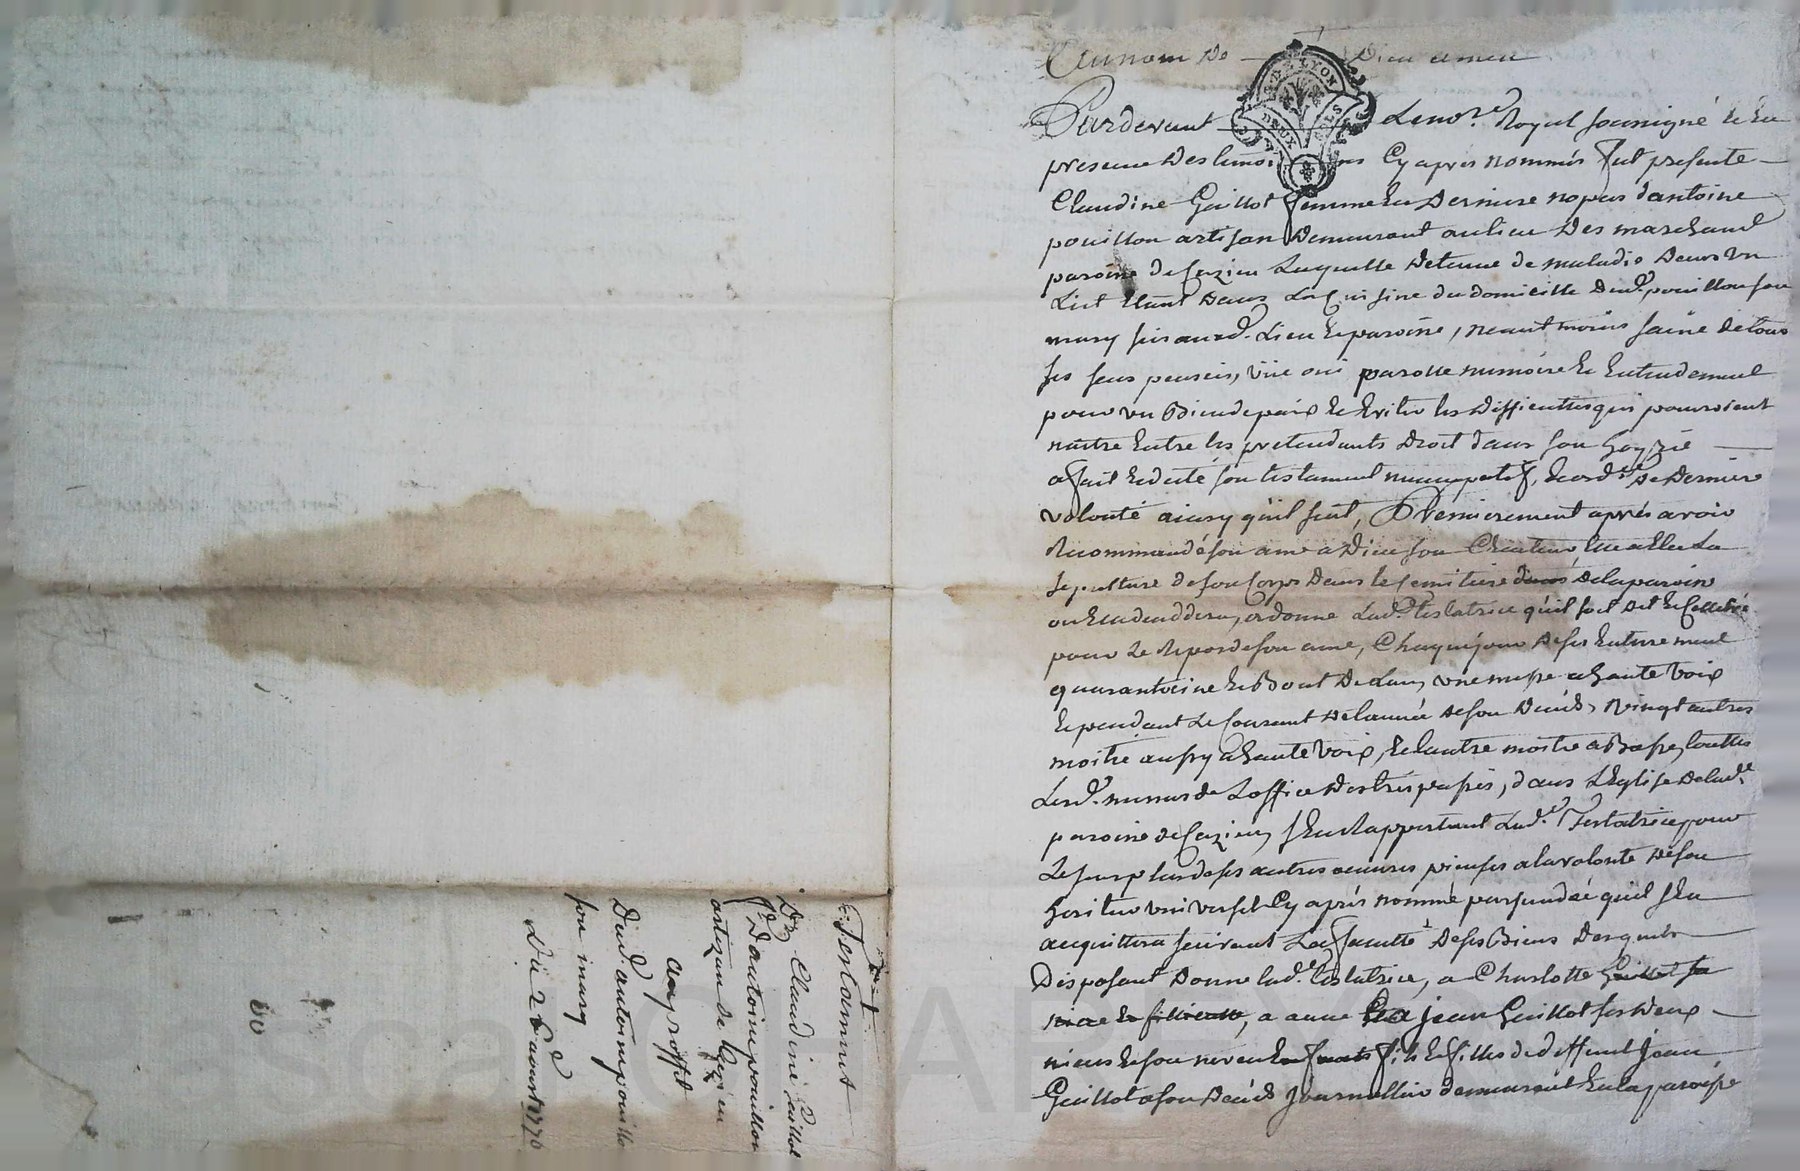 Au nom De Dieu amen
Pardevant Le no.re Royal soussigné & En
presence Des temoins Cy apres nommés fut presente
Claudine Guillot femme En Derniere nopces d'antoine
pouillon artisan Demeurant au lieu Des marchand
paroine de Cezieu Laquelle detenue de maladie Dans un
Lict Etant Dans La Cuisine du domicille Dud. pouillon son
mary sis aud. Lieu & paroine, neantmoins saine de tous
ses sens pensées, vüe ouie parolle memoire & Entendement
pour un Bien de paix & Eviter les difficultes qui pourroient
naitre Entre les pretendants Droit dans son hoyrie
a fait & dicté son testament nuncupatif, & ord.ce De Derniere
volonté ainsy qu'il suit, Premierement aprés avoir
Recommandé son ame a Dieu son Createur Elu a Elle La
sepulture de son Corps Dans le Cemitiere de la paroine
ou Elle deceddera, ordonne Lad. testatrice qu'il soit dit & Cellebré
pour Le Repos de son ame, Chaque jour De ses Enterrement
quarantaine & Bout De L'an, une messe a haute voix
& pendant Le Courant De l'année De son Décés, vingt autres
moitié aussy a haute voix, & l'autre moitié a Basse, touttes
Lesd. messes de L'office Des trépassés, dans L'Eglise De lad.e
paroine de Cezieu, s'En Rapportant Lad.e Testatrice pour
Le surplus de ses autres oeuvres pieuses a la volonté De son
heritier universel Cy aprés nommé persuadée qu'il s'En
acquittera suivant La faculté De ses Biens Desquels
Disposant Donne lad.e testatrice, a Charlotte Guillot sa
niece & filleule, a anne & a jean Guillot ses Deux
nieces & son neveu Enfants fils & filles de deffunt Jean
Guillot a son Décés Journallier demeurant En la paroisse
Testament
De Claudine Guillot
f.e D'antoine pouillon
artizan de Cezieu
au proffit
Dud. antoine pouillon
son mary
Du 26 aoust 1770